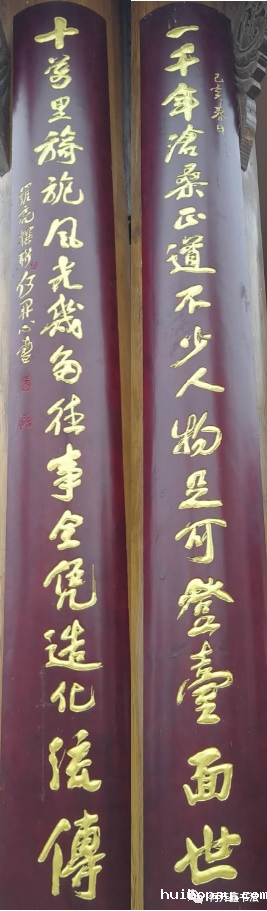 一千年滄桑正道不少人物足可登臺面世
己亥春日
十萬里旖旎风光幾多往事全凭造化流傳